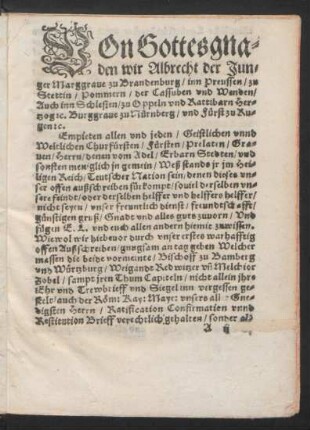 VOn Gottesgna-
den wir Albrecht der Jun-
ger Marggraue zu Brandenburg/ inn Preussen/ zu
Stettin/ Pommern/ der Cassuben vnd Wenden/
Auch inn Schlesien/ zu Oppeln vnd Rattibarn Her-
tzog ꝛc. Burggraue zu Nürnberg/ vnd Fürst zu Ru-
gen ꝛc.
Empieten allen vnd jeden/ Geistlichen vnnd
Weltlichen Churfürsten/ Fürsten/ Prelaten/ Gra-
uen/ Herrn/ denen vom Adel/ Erbarn Stedten/ vnd
sonsten menigklich in gemein/ Weß stands jr im hei-
ligen Reich/ Teutscher Nation sein/ denen dieses vn-
ser offen außschreiben fürkompt/ souiel derselben vn-
sere feinde/ oder derselben helffer vnd helffers helffer/
nicht seyn/ vnser freuntlich dienst/ freundtschafft/
günstigen gruß/ Gnadt vnd alles guts zuuorn/ Vnd
fügen E. L. vnd euch allen andern hiemit zuwissen.
Wiewol wir hiebeuor durch vnser erstes warhafftig
offen Außschreiben/ gnugsam an tag geben Welcher
massen die beide vormeinte/ Bischoff zu Bamberg
vnd Würtzburg/ Weigandt Redwitzer vnd Melchior
Zobel/ sampt jren Thum Capiteln/ nicht allein jhr
Ehr vnd Trewbrieff vnd Siegel inn vergessen ge-
stelt/ auch der Röm: Kay: May: vnsers all: Gne-
digsten Herrn/ Ratification Confirmation vnnd
Restitution Brieff verechtlich gehalten/ sonder als
A ij